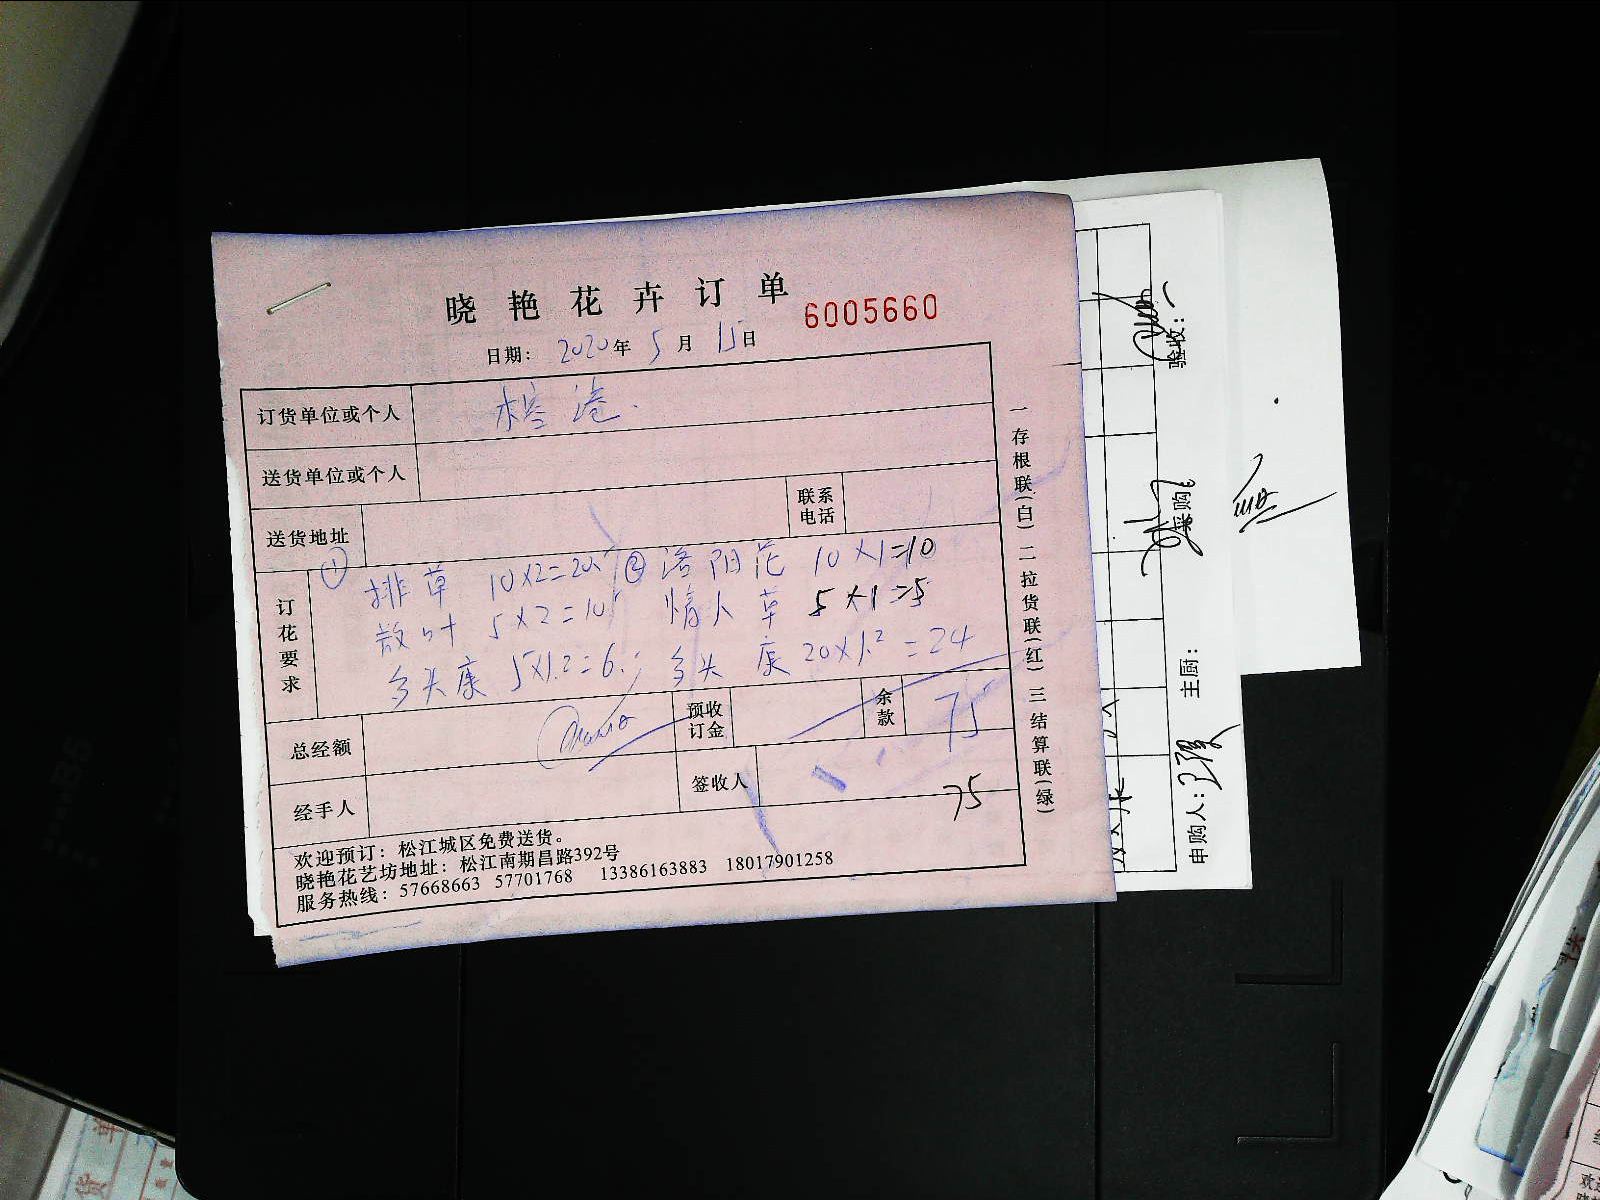 晓艳花卉订单
6005660
日期: 2020年5月15日
订货单位或个人 榕港.
送货单位或个人
送货地址 联系电话
订花要求
① 排草 10×2=20 ② 洛阳花 10×1=10
散叶 5×2=10 情人草 5×1=5
多头康 5×1.2=6. 多头康 20×1.2=24
总经额 预收订金 余款 75
经手人 签收人
75
欢迎预订: 松江城区免费送货。
晓艳花艺坊地址: 松江南期昌路392号
服务热线: 57668663 57701768 13386163883 18017901258
一存根联(白) 二拉货联(红) 三结算联(绿)
验收:
采购
主厨:
申购人:
B5